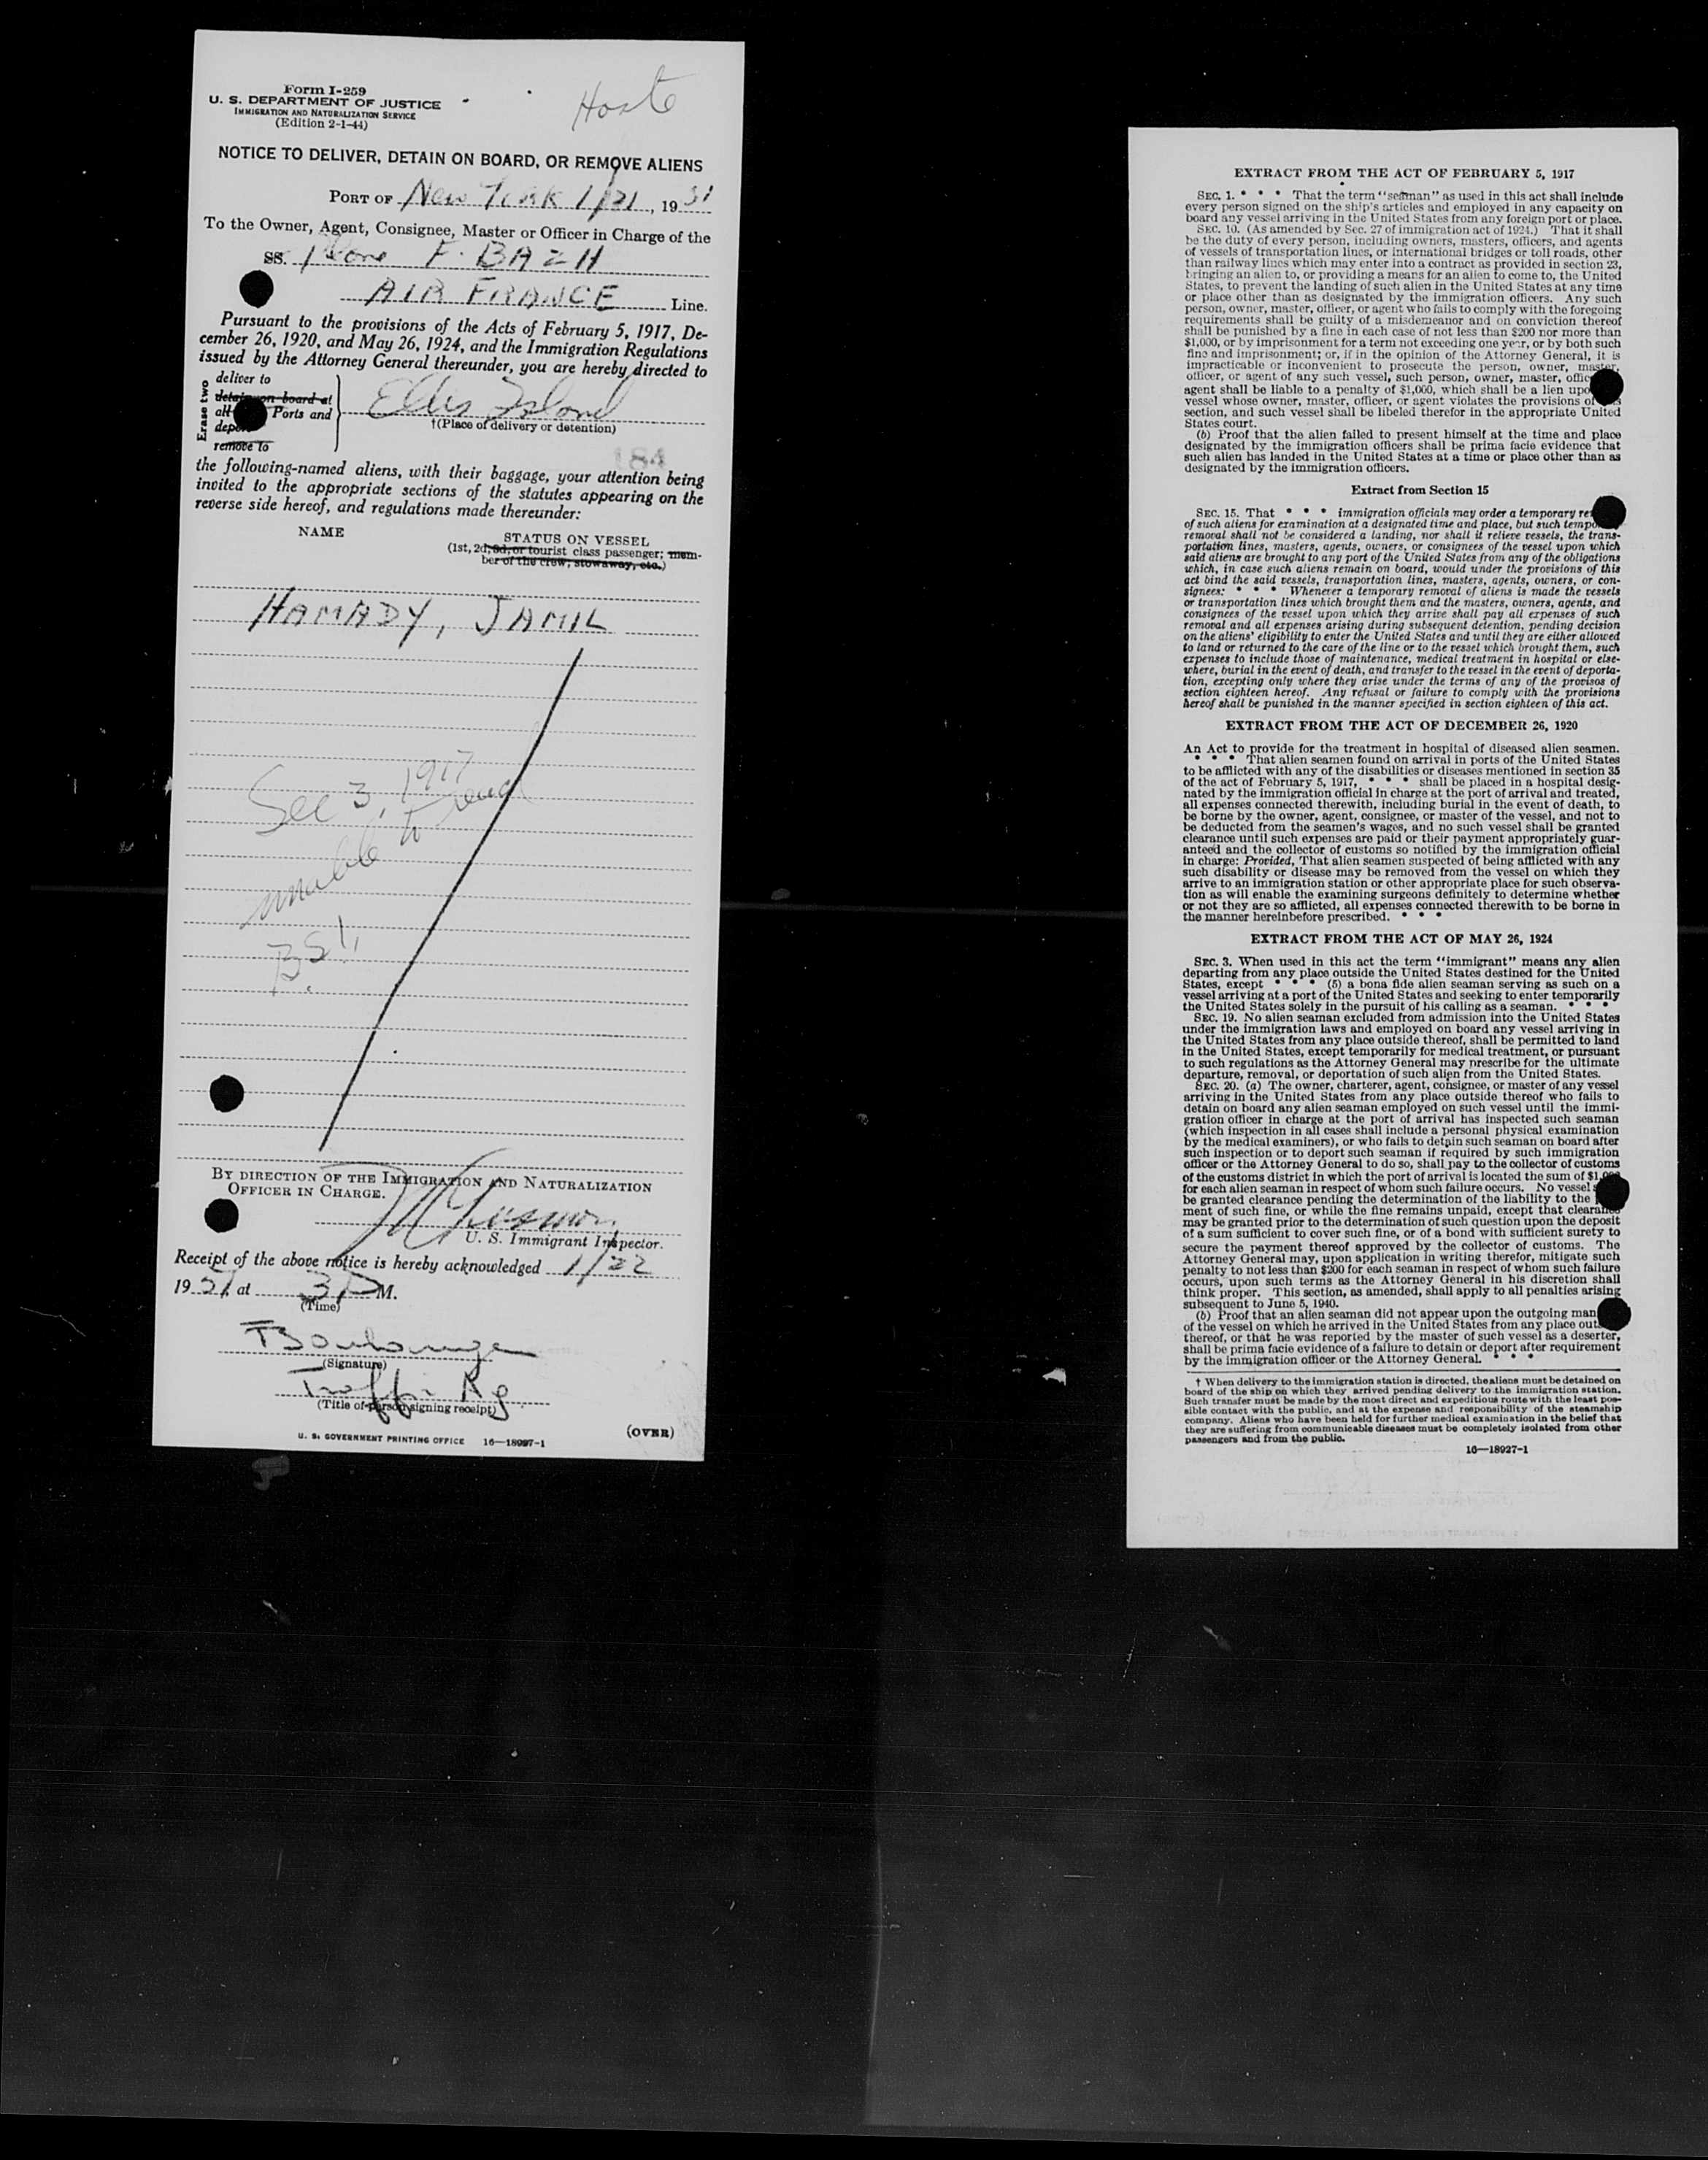 Form I-259
U. S. DEPARTMENT OF JUSTICE
IMMIGRATION AND NATURALIZATION SERVICE
(Edition 2-1-44)
NOTICE TO DELIVER, DETAIN ON BOARD, OR REMOVE ALIENS
PORT OF New York 1/21, 1951
To the Owner, Agent, Consignee, Master or Officer in Charge of the
SS. Plane F. BAZH
AIR FRANCE Line.
Pursuant to the provisions of the Acts of February 5, 1917, De-
cember 26, 1920, and May 26, 1924, and the Immigration Regulations
issued by the Attorney General thereunder, you are hereby directed to
Erase two
deliver to
detain on board at
all Ports and
remove to
Ellis Island
†(Place of delivery or detention)
184
the following-named aliens, with their baggage, your attention being
invited to the appropriate sections of the statutes appearing on the
reverse side hereof, and regulations made thereunder:
NAME STATUS ON VESSEL
(1st, 2d, 3d, or tourist class passenger; mem-
ber of the crew; stowaway, etc.)
HAMADY, JAMIL
Sec 3, 1917
unable to read
B.S.I.
BY DIRECTION OF THE IMMIGRATION AND NATURALIZATION
OFFICER IN CHARGE.
U. S. Immigrant Inspector.
Receipt of the above notice is hereby acknowledged 1/22
1951 at 3 P M.
(Time)
(Signature)
Traffic Ag
(Title of person signing receipt)
U. S. GOVERNMENT PRINTING OFFICE 16—18927-1
(OVER)
EXTRACT FROM THE ACT OF FEBRUARY 5, 1917
SEC. 1. * * * That the term "seaman" as used in this act shall include
every person signed on the ship's articles and employed in any capacity on
board any vessel arriving in the United States from any foreign port or place.
SEC. 10. (As amended by Sec. 27 of immigration act of 1924.) That it shall
be the duty of every person, including owners, masters, officers, and agents
of vessels of transportation lines, or international bridges or toll roads, other
than railway lines which may enter into a contract as provided in section 23,
bringing an alien to, or providing a means for an alien to come to, the United
States, to prevent the landing of such alien in the United States at any time
or place other than as designated by the immigration officers. Any such
person, owner, master, officer, or agent who fails to comply with the foregoing
requirements shall be guilty of a misdemeanor and on conviction thereof
shall be punished by a fine in each case of not less than $200 nor more than
$1,000, or by imprisonment for a term not exceeding one year, or by both such
fine and imprisonment; or, if in the opinion of the Attorney General, it is
impracticable or inconvenient to prosecute the person, owner, master,
officer, or agent of any such vessel, such person, owner, master, offic
agent shall be liable to a penalty of $1,000, which shall be a lien upo
vessel whose owner, master, officer, or agent violates the provisions of
section, and such vessel shall be libeled therefor in the appropriate United
States court.
(b) Proof that the alien failed to present himself at the time and place
designated by the immigration officers shall be prima facie evidence that
such alien has landed in the United States at a time or place other than as
designated by the immigration officers.
Extract from Section 15
SEC. 15. That * * * immigration officials may order a temporary re
of such aliens for examination at a designated time and place, but such tempo
removal shall not be considered a landing, nor shall it relieve vessels, the trans-
portation lines, masters, agents, owners, or consignees of the vessel upon which
said aliens are brought to any port of the United States from any of the obligations
which, in case such aliens remain on board, would under the provisions of this
act bind the said vessels, transportation lines, masters, agents, owners, or con-
signees: * * * Whenever a temporary removal of aliens is made the vessels
or transportation lines which brought them and the masters, owners, agents, and
consignees of the vessel upon which they arrive shall pay all expenses of such
removal and all expenses arising during subsequent detention, pending decision
on the aliens' eligibility to enter the United States and until they are either allowed
to land or returned to the care of the line or to the vessel which brought them, such
expenses to include those of maintenance, medical treatment in hospital or else-
where, burial in the event of death, and transfer to the vessel in the event of deporta-
tion, excepting only where they arise under the terms of any of the provisos of
section eighteen hereof. Any refusal or failure to comply with the provisions
hereof shall be punished in the manner specified in section eighteen of this act.
EXTRACT FROM THE ACT OF DECEMBER 26, 1920
An Act to provide for the treatment in hospital of diseased alien seamen.
* * * That alien seamen found on arrival in ports of the United States
to be afflicted with any of the disabilities or diseases mentioned in section 35
of the act of February 5, 1917, * * * shall be placed in a hospital desig-
nated by the immigration official in charge at the port of arrival and treated,
all expenses connected therewith, including burial in the event of death, to
be borne by the owner, agent, consignee, or master of the vessel, and not to
be deducted from the seamen's wages, and no such vessel shall be granted
clearance until such expenses are paid or their payment appropriately guar-
anteed and the collector of customs so notified by the immigration official
in charge: Provided, That alien seamen suspected of being afflicted with any
such disability or disease may be removed from the vessel on which they
arrive to an immigration station or other appropriate place for such observa-
tion as will enable the examining surgeons definitely to determine whether
or not they are so afflicted, all expenses connected therewith to be borne in
the manner hereinbefore prescribed. * * *
EXTRACT FROM THE ACT OF MAY 26, 1924
SEC. 3. When used in this act the term "immigrant" means any alien
departing from any place outside the United States destined for the United
States, except * * * (5) a bona fide alien seaman serving as such on a
vessel arriving at a port of the United States and seeking to enter temporarily
the United States solely in the pursuit of his calling as a seaman. * * *
SEC. 19. No alien seaman excluded from admission into the United States
under the immigration laws and employed on board any vessel arriving in
the United States from any place outside thereof, shall be permitted to land
in the United States, except temporarily for medical treatment, or pursuant
to such regulations as the Attorney General may prescribe for the ultimate
departure, removal, or deportation of such alien from the United States.
SEC. 20. (a) The owner, charterer, agent, consignee, or master of any vessel
arriving in the United States from any place outside thereof who fails to
detain on board any alien seaman employed on such vessel until the immi-
gration officer in charge at the port of arrival has inspected such seaman
(which inspection in all cases shall include a personal physical examination
by the medical examiners), or who fails to detain such seaman on board after
such inspection or to deport such seaman if required by such immigration
officer or the Attorney General to do so, shall pay to the collector of customs
of the customs district in which the port of arrival is located the sum of $1,000
for each alien seaman in respect of whom such failure occurs. No vessel
be granted clearance pending the determination of the liability to the
ment of such fine, or while the fine remains unpaid, except that clearance
may be granted prior to the determination of such question upon the deposit
of a sum sufficient to cover such fine, or of a bond with sufficient surety to
secure the payment thereof approved by the collector of customs. The
Attorney General may, upon application in writing therefor, mitigate such
penalty to not less than $200 for each seaman in respect of whom such failure
occurs, upon such terms as the Attorney General in his discretion shall
think proper. This section, as amended, shall apply to all penalties arising
subsequent to June 5, 1940.
(b) Proof that an alien seaman did not appear upon the outgoing man
of the vessel on which he arrived in the United States from any place out
thereof, or that he was reported by the master of such vessel as a deserter,
shall be prima facie evidence of a failure to detain or deport after requirement
by the immigration officer or the Attorney General. * * *
† When delivery to the immigration station is directed, the aliens must be detained on
board of the ship on which they arrived pending delivery to the immigration station.
Such transfer must be made by the most direct and expeditious route with the least pos-
sible contact with the public, and at the expense and responsibility of the steamship
company. Aliens who have been held for further medical examination in the belief that
they are suffering from communicable diseases must be completely isolated from other
passengers and from the public.
16—18927-1